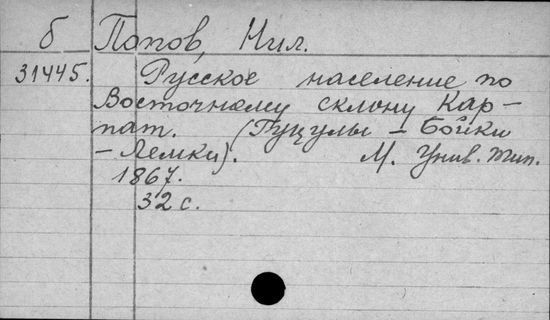 б Попов, Нил.
31445. Русское население по
Восточному склону Кар-
пат. (Гуцулы - Бойки
- Лемки). М. Унив. тип.
1867.
32 с.